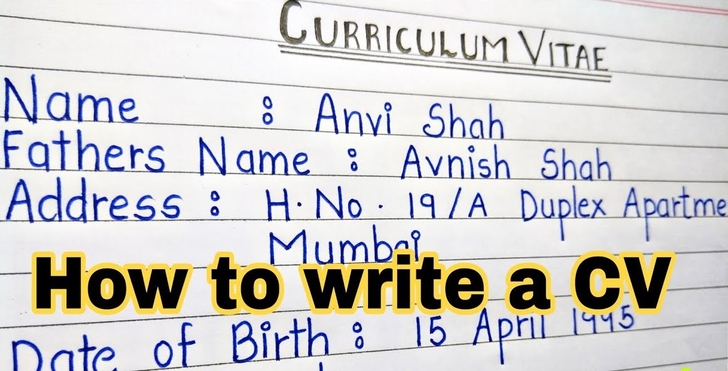 CURRICULUM VITAE
Name : Anvi Shah
Fathers Name : Avnish Shah
Address : H. No. 19/A Duplex Apartme
Mumbai
How to write a CV
Date of Birth : 15 April 1995